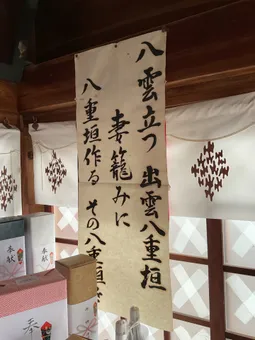 八雲立つ 出雲八重垣
妻籠みに
八重垣作る その八重垣
奉献
奉献
奉